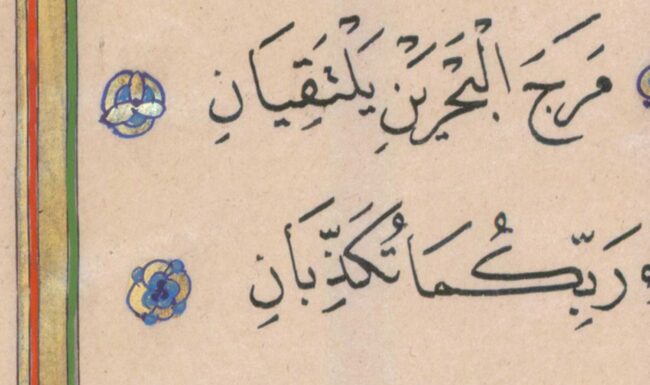 مَرَجَ الْبَحْرَيْنِ يَلْتَقِيَانِ
رَبِّكُمَا تُكَذِّبَانِ